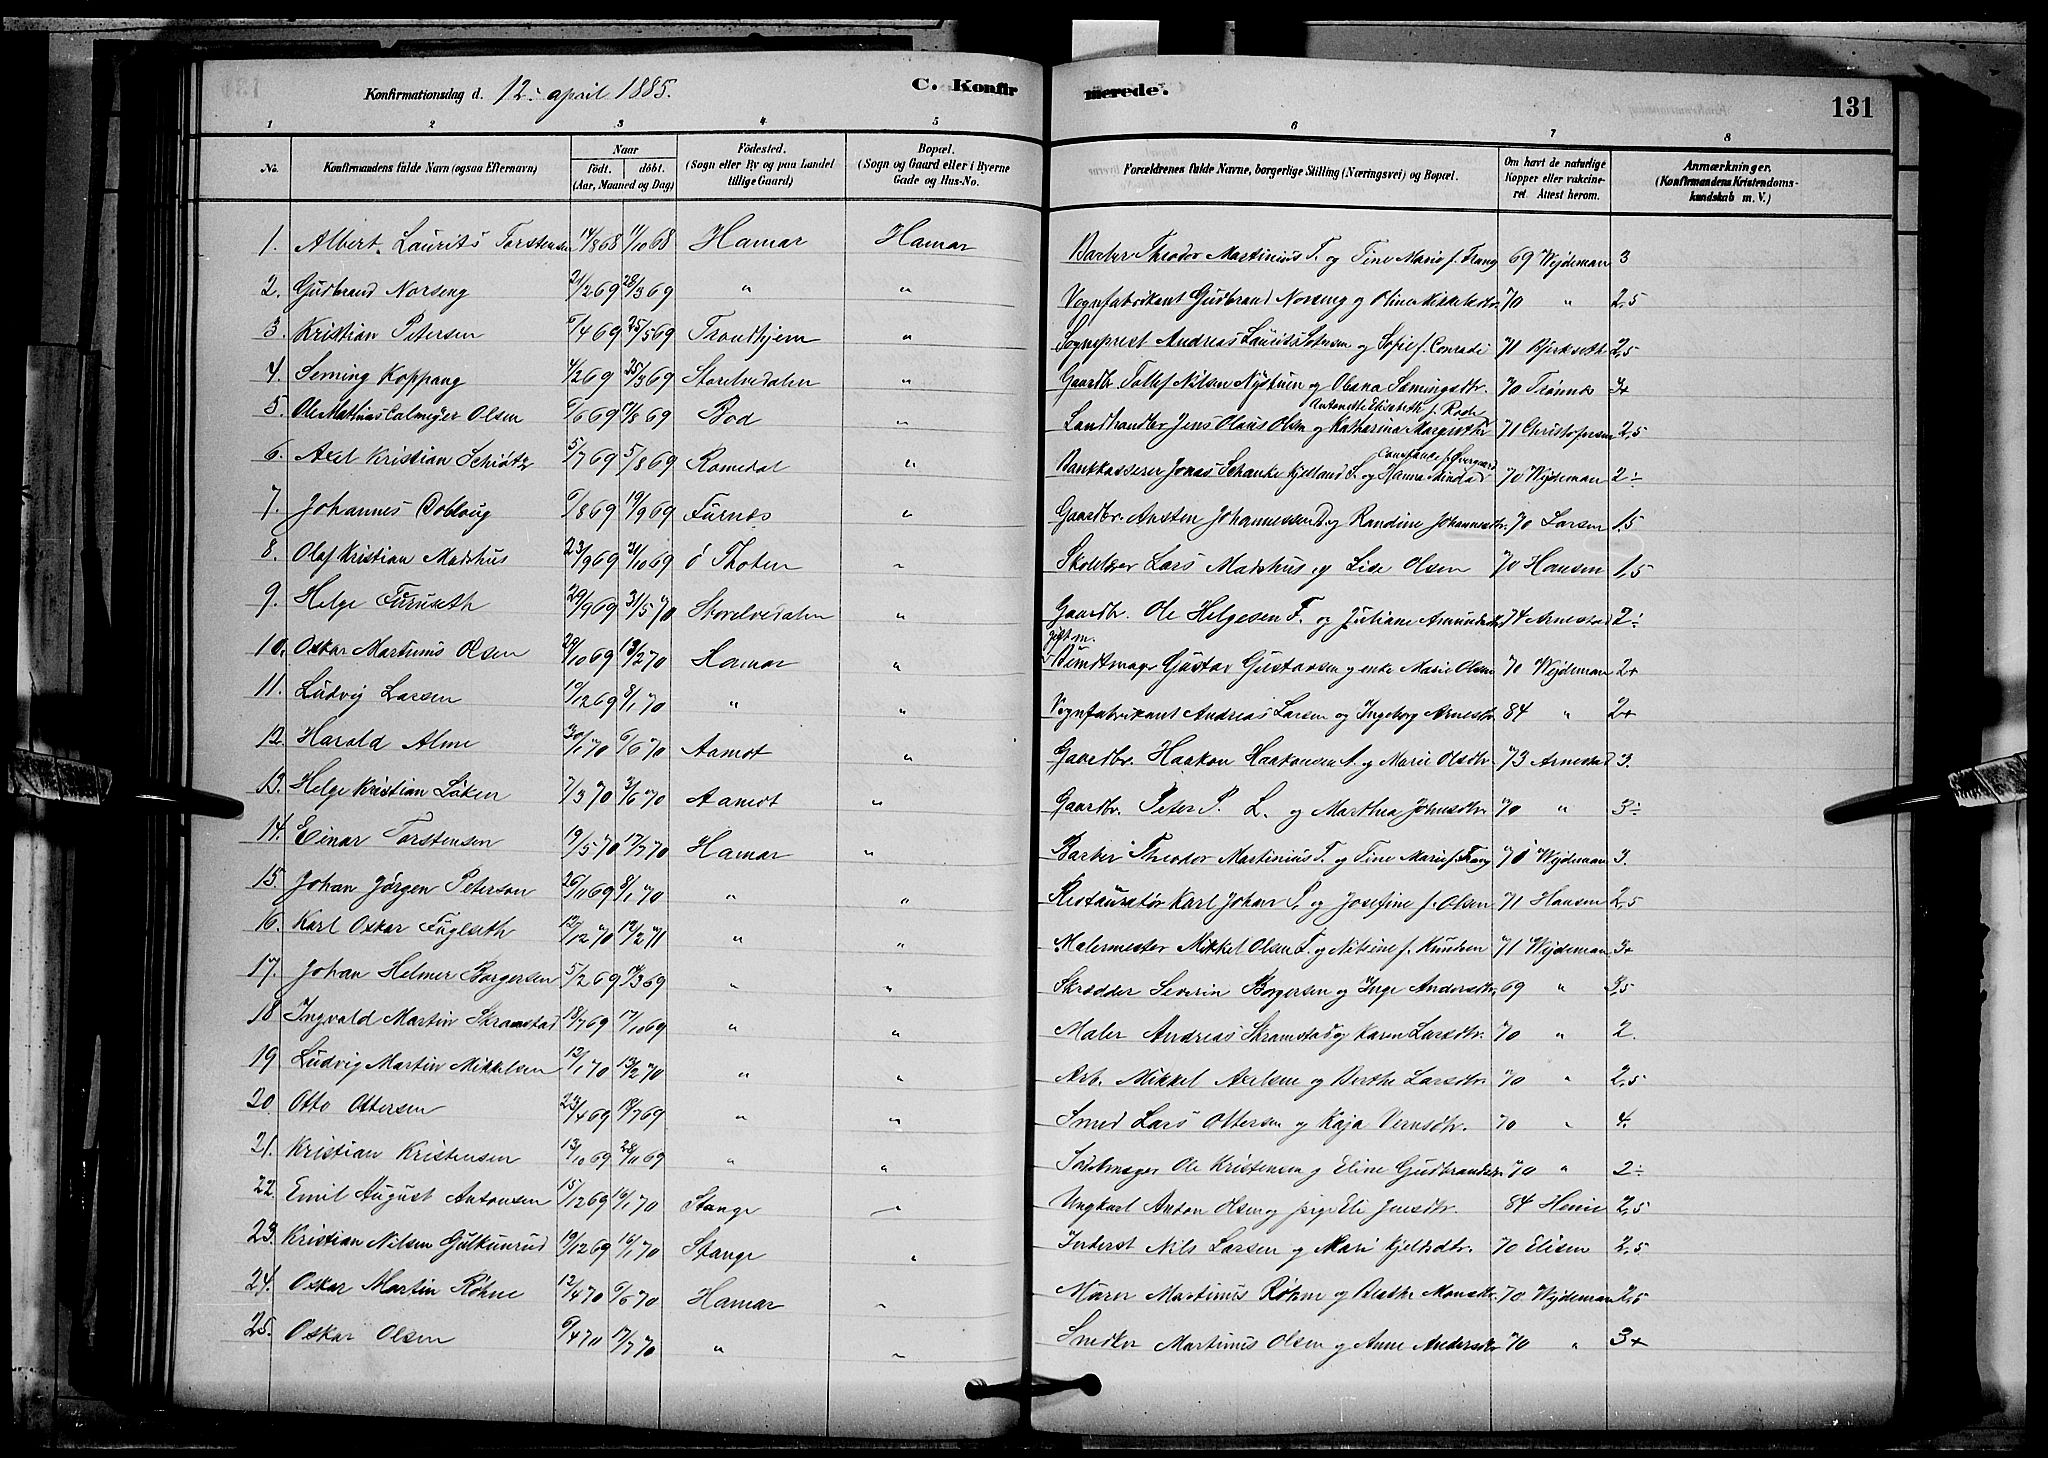 Konfirmationsdag d. 12. april 1885.
C. Konfirmerede.
131
1 2 3 4 5 6 7 8
No. Konfirmandens fulde Navn (ogsaa Efternavn) Naar født. døbt. (Aar, Maaned og Dag) Fødested. (Sogn eller By og paa Landet tillige Gaard) Bopæl. (Sogn og Gaard eller i Byerne Gade og Hus-No. Forældrenes fulde Navne, borgerlige Stilling (Næringsvei) og Bopæl. Om havt de naturlige Kopper eller vakcineret. Attest herom. Anmærkninger. (Konfirmandens Kristendomskundskab m. V.)
1. Albert Laurits Torstensen 14/8 68 11/10 68 Hamar Hamar Barber Theodor Martinius T. og Tine Marie f. Frang 69 Wejdeman 3
2. Gudbrand Norseng 21/2 69 28/3 69 " " Vognfabrikant Gudbrand Norseng og Olina 70 " 2,5
3. Kristian Petersen 6/4 69 25/5 69 Trondhjem " Sogneprest Andreas Laurits og Sofie f. Conradi 71 Bjerkseth 2,5
4. Seming Koppang 4/2 69 25/3 69 Storelvedalen " Gaardbr. Tollef Nilsen Nystuen og Semingsdtr. 70 Trønnes 3+
5. Ole Mathias Calmeyer Olsen 6/6 69 8 69 Bod " Landhandler Jens Olaus Olsen og Katharina Margrethe Antonette Elisabeth f. Rode 71 Christophersen 2,5
6. Axel Kristian Schiøtz 5/7 69 5/8 69 Romedal " Bankkasserer Jonas Schanke Kjelland S. og Hanna Constance f. 70 Wejdeman 2÷
7. Johannes Dobloug 6/8 69 19/9 69 Furnes " Gaardbr. Austen Johannessen D. og Randine Johannesdtr. 70 Larsen 1,5
8. Olaf Kristian Madshus 23/9 69 31/10 69 ø Thoten " Skolelærer Lars Madshus og Lise Olsen 70 Hansen 1,5
9. Helge Furuseth 29/9 69 31/5 70 Storelvedalen " Gaardbr. Ole Helgesen F. og Juliane Amundsdtr 74 Arnestad 2÷
10. Oskar Martinius Olsen 28/10 69 13/2 70 Hamar " gift m. Bundtmager Gustav Gustavsen og enke Marie Olsen 70 Wejdeman 2+
11. Ludvig Larsen 10/12 69 8/1 70 " " Vognfabrikant Andreas Larsen og Ingeborg Arnesdtr 84 " 2+
12. Harald Alme 30/1 70 6/6 70 Aamot " Gaardbr. Haakon Haakonsen A. og Marie Olsdtr. 73 Arnestad 3.
13. Helge Kristian Løken 7/3 70 3/6 70 Aamot " Gaardbr. Peter P. L. og Marthea Johnsdtr 70 " 3÷
14. Einar Torstensen 19/5 70 17/7 70 Hamar " Barber Theodor Martinius T. og Tine Marie f. Frang 70 Wejdeman 3.
15. Johan Jørgen Peterson 26/11 69 8/1 70 " " Restauratør Karl Johan P. og Josefine f. Olsen 71 Hansen 2,5
16. Karl Oskar Fuglseth 12/12 70 12/2 71 " " Malermester Mikkel Olsen F. og f. Knudsen 71 Wejdeman 3+
17. Johan Helmer Borgersen 5/2 69 14/3 69 " " Skrædder Severin Borgersen og Inge Andersdtr. 69 " 3,5
18 Ingvald Martin Skramstad 18/7 69 17/10 69 " " Maler Andreas Skramstad og Karen Larsdtr. 70 " 2.
19 Ludvig Martin Mikkelsen 12/1 70 13/2 70 " " Arb. Mikkel Axelsen og Berthe Larsdtr 70 " 2,5
20. Otto Ottersen 23/4 69 18/7 69 " " Smed Lars Ottersen og Kaja 70 " 4.
21. Kristian Kristensen 13/10 69 28/11 69 " " Ole Kristensen og Eline Gudbrandsdtr 70 " 2÷
22. Emil August Antonsen 15/12 69 16/1 70 Stange " Ungkarl Anton Olsen og pige Eli Jensdtr. 84 2,5
23. Kristian Nilsen Gulkunrud 19/12 69 16/1 70 Stange " Inderst Nils Larsen og Mari Kjelsdtr. 70 Elisen 2,5
24. Oskar Martin Røhne 12/4 70 6/6 70 Hamar " Murer Martinus Røhne og Beathe Monsdtr. 70 Wejdeman 2,5
25. Oskar Olsen 6/4 70 17/7 70 " " Snedker Martinius Olsen og Anne Andersdtr 70 " 3+